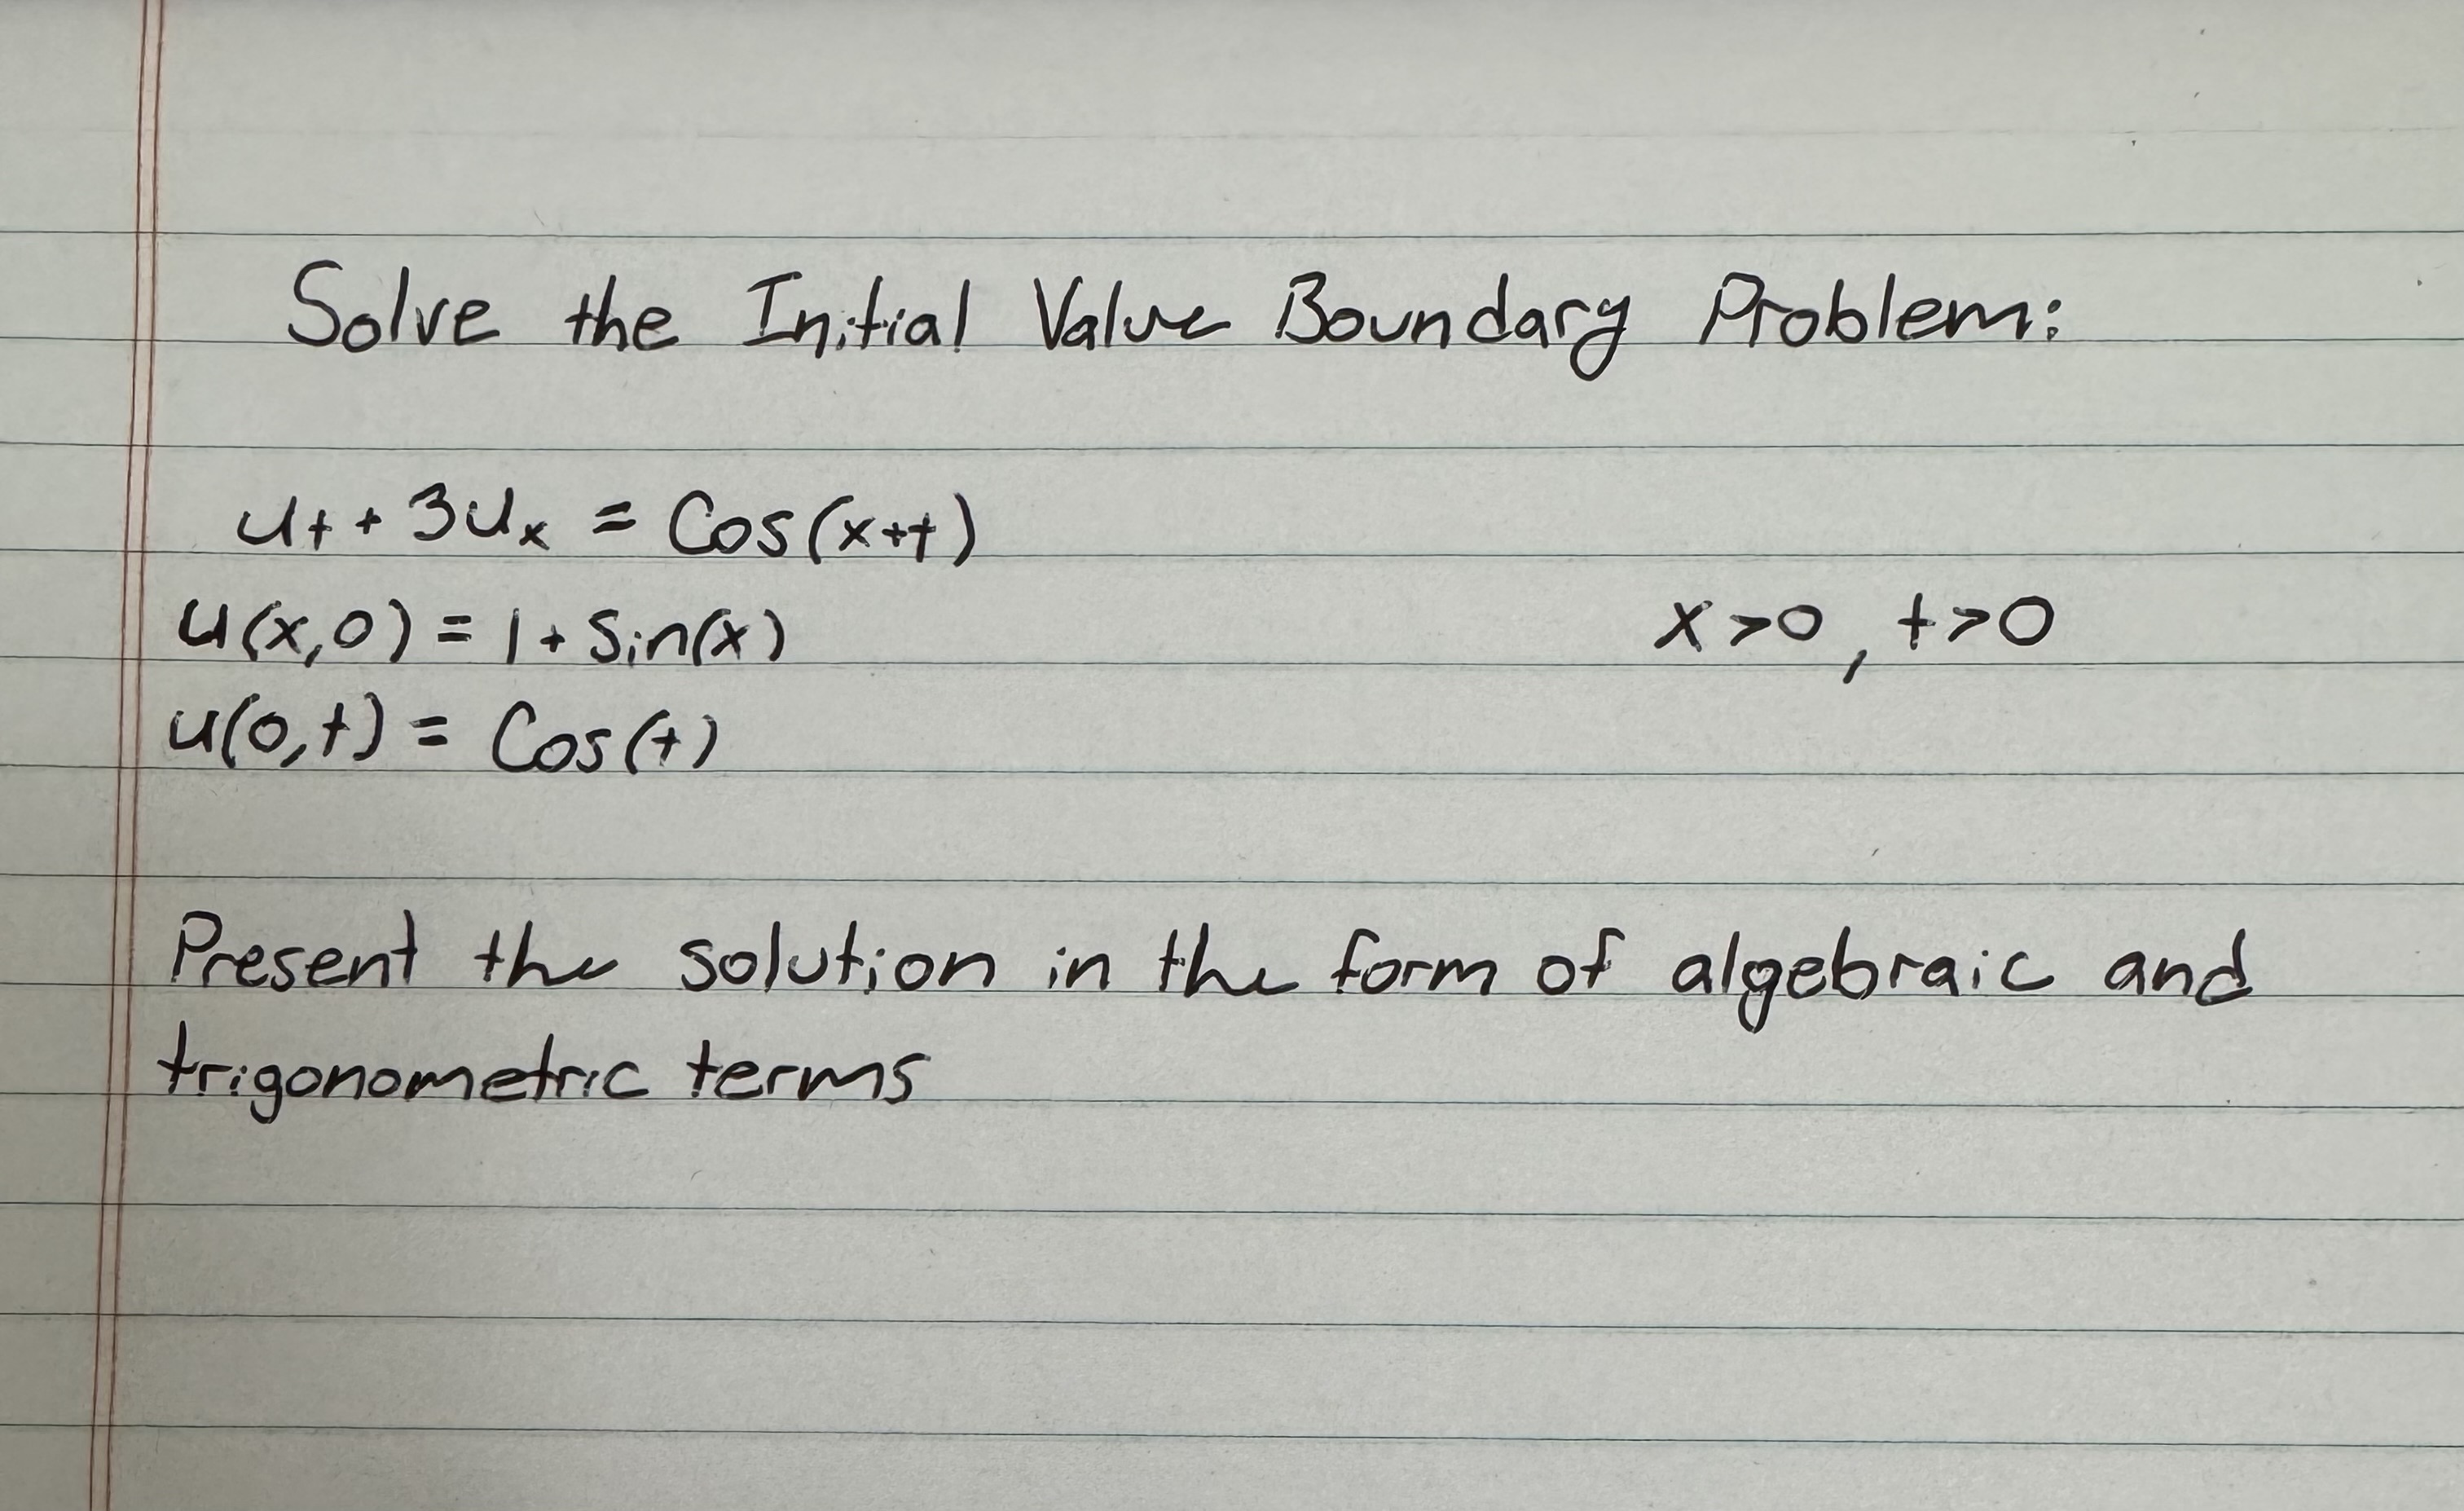 Solve the Initial Value Boundary Problem:
u_t + 3u_x = Cos(x+t)
u(x,0) = 1 + Sin(x)
x>0, t>0
u(0,t) = Cos(t)
Present the solution in the form of algebraic and
trigonometric terms